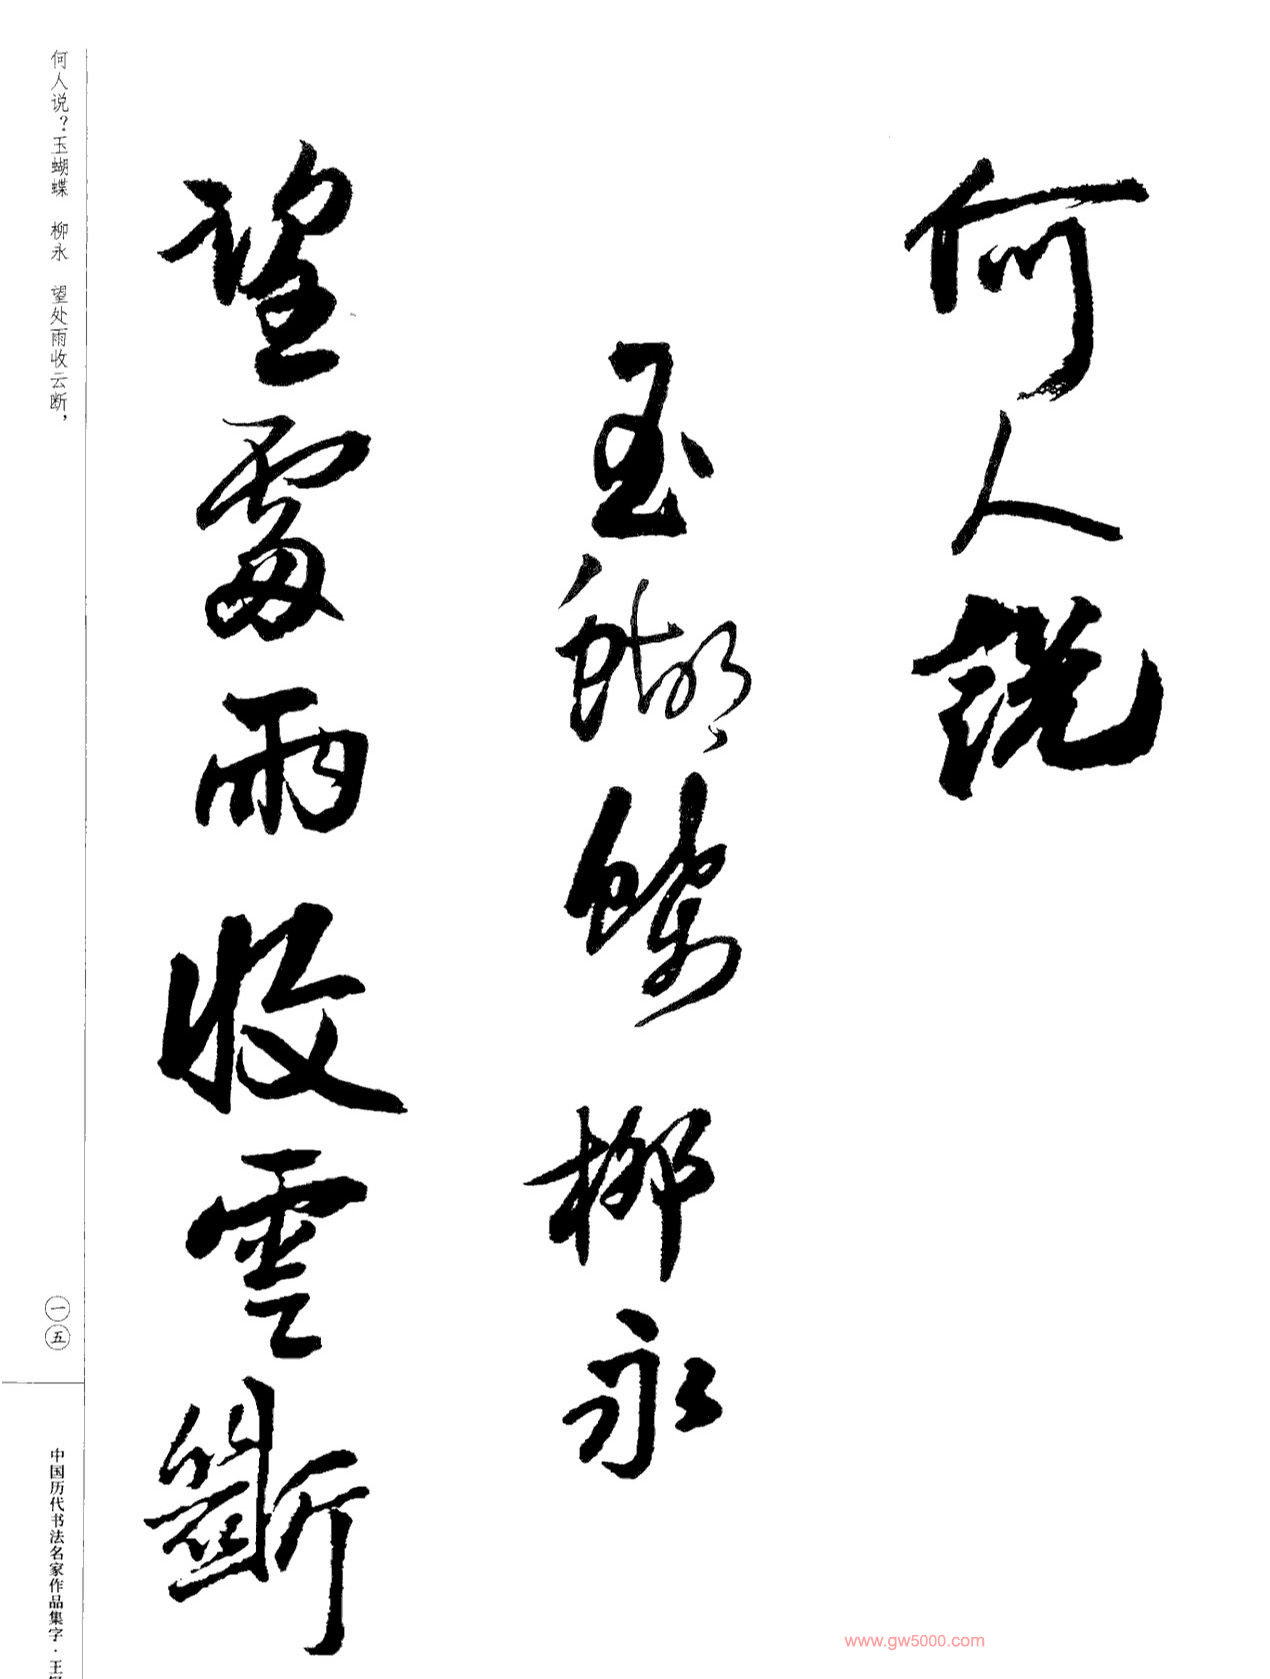 何人說
玉蝴蝶 柳永
望處雨收雲斷
何人说？玉蝴蝶 柳永 望处雨收云断，
一五
中国历代书法名家作品集字·王
www.gw5000.com